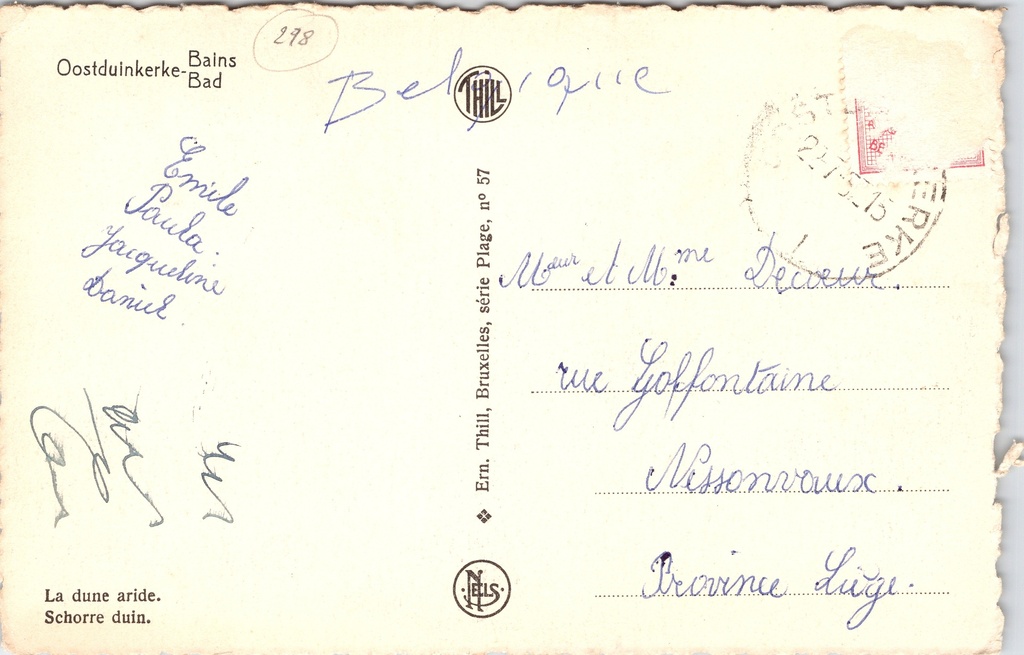 Oostduinkerke-Bains
Bad
298
Belgique
THILL
Emile
Paula.
Jacqueline
Daniel.
Ern. Thill, Bruxelles, série Plage, nº 57
Mœur et M.me Decœur.
rue Goffontaine
Nessonvaux.
Province Liège.
NELS
La dune aride.
Schorre duin.